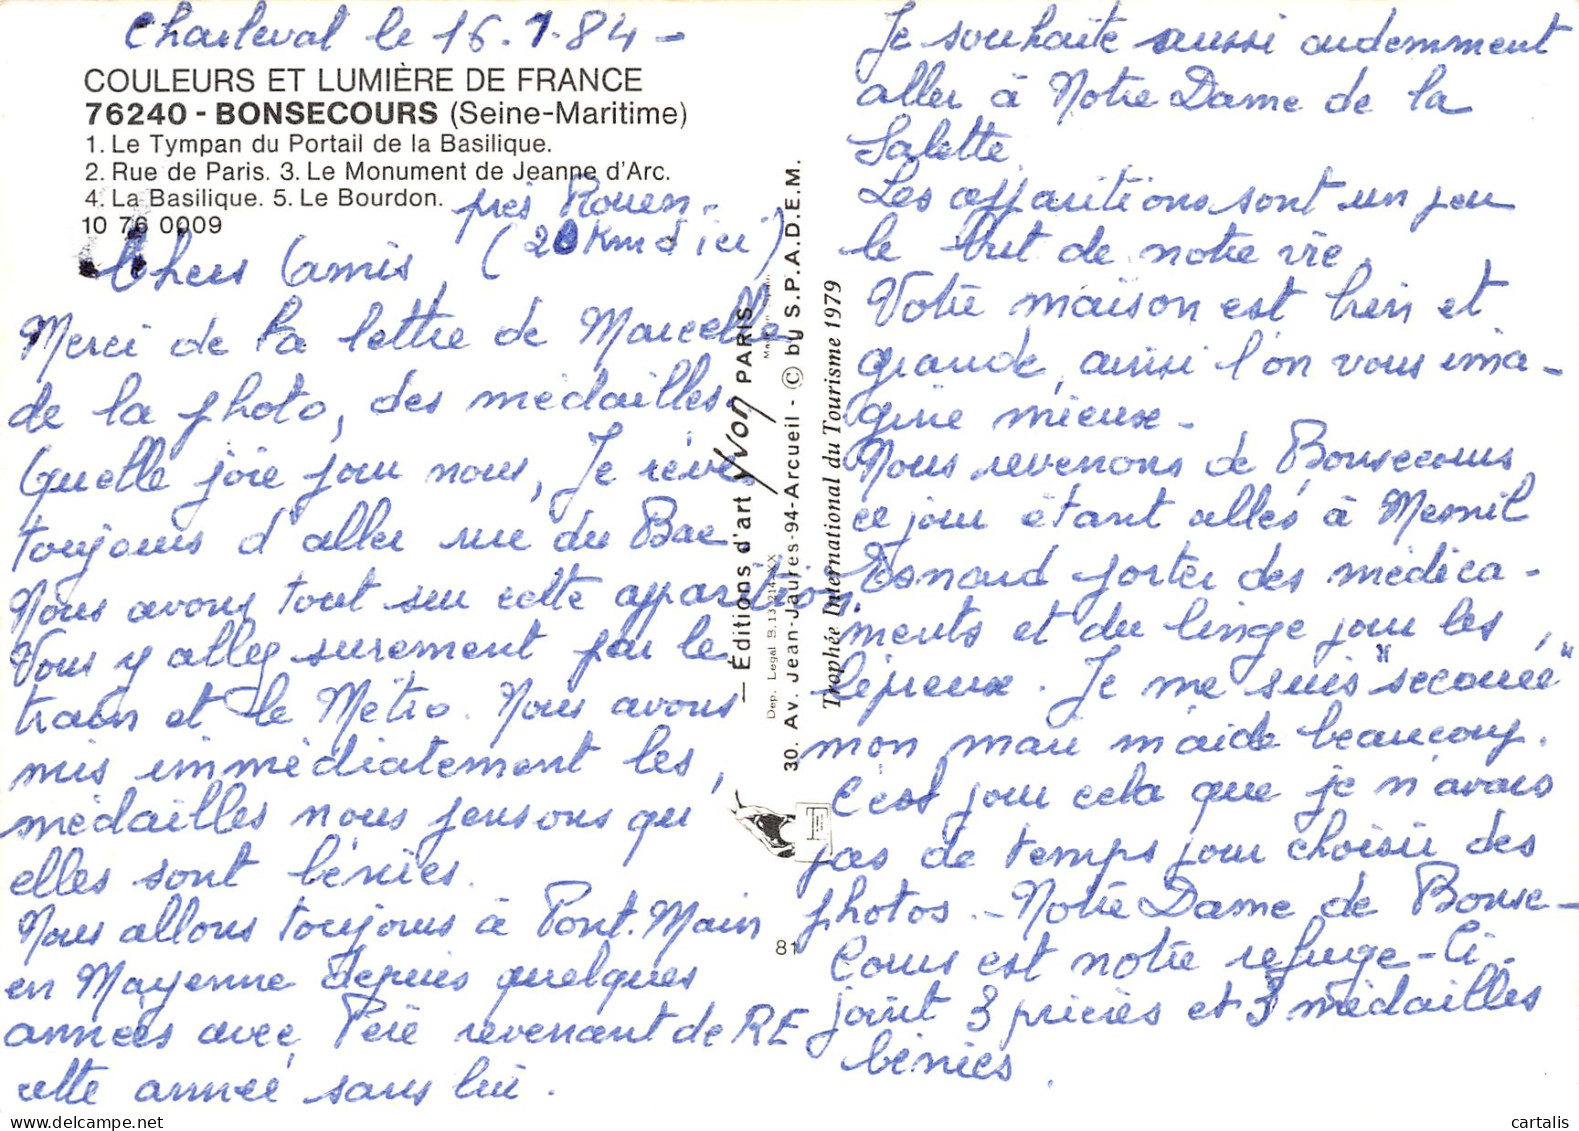 Charleval le 16.1.84 -
COULEURS ET LUMIÈRE DE FRANCE
76240 - BONSECOURS (Seine-Maritime)
1. Le Tympan du Portail de la Basilique.
2. Rue de Paris. 3. Le Monument de Jeanne d'Arc.
4. La Basilique. 5. Le Bourdon.
10 76 0009
près Rouen -
(20 Km d'ici)
Chers Amis,
Merci de la lettre de Marcelle
de la photo, des médailles
Quelle joie pour nous, Je rêve
toujours d'aller rue du Bac
Nous avons tout sur cette apparition.
Vous y allez surement par le
train et le Métro. Nous avons
mis immédiatement les
médailles nous pensons qu'
elles sont bénies.
Nous allons toujours à Pont.Main
en Mayenne depuis quelques
années avec Père revenant de RE
cette année sans lui.
— Éditions d'art YVON PARIS
Dep. Legal B.
30. Av. Jean-Jaurès-94-Arcueil - © by S.P.A.D.E.M.
Trophée International du Tourisme 1979
81
Je souhaite aussi ardemment
aller à Notre Dame de la
Salette
Les apparitions sont un peu
le but de notre vie.
Votre maison est bien et
grande, ainsi l'on vous ima-
gine mieux -
Nous revenons de Bonsecours
ce jour étant allés à Mesnil
Esnard porter des médica-
ments et du linge pour les
lépreux. Je me suis "secouée"
mon mari m'aide beaucoup.
C'est pour cela que je n'avais
pas de temps pour choisir des
photos - Notre Dame de Bonse-
Cours est notre refuge - Ci-
joint 3 prières et 3 médailles
bénies.
cartalis
www.delcampe.net